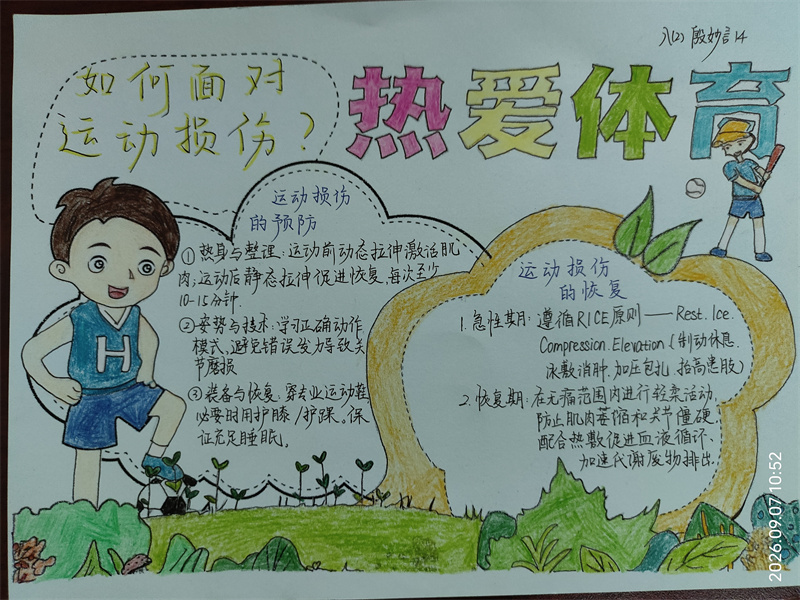 八(2) 殷妙言 14
热爱体育
如何面对
运动损伤？
运动损伤
的预防
①热身与整理：运动前动态拉伸激活肌
肉，运动后静态拉伸促进恢复，每次至少
10-15分钟.
②姿势与技术：学习正确动作
模式，避免错误发力导致关
节磨损
③装备与恢复：穿专业运动鞋
必要时用护膝/护踝。保
证充足睡眠。
运动损伤
的恢复
1.急性期：遵循RICE原则——Rest. Ice.
Compression. Elevation (制动休息.
冰敷消肿.加压包扎.抬高患肢)
2.恢复期：在无痛范围内进行轻柔活动，
防止肌肉萎缩和关节僵硬.
配合热敷促进血液循环、
加速代谢废物排出.
H
2026.09.07 10:52